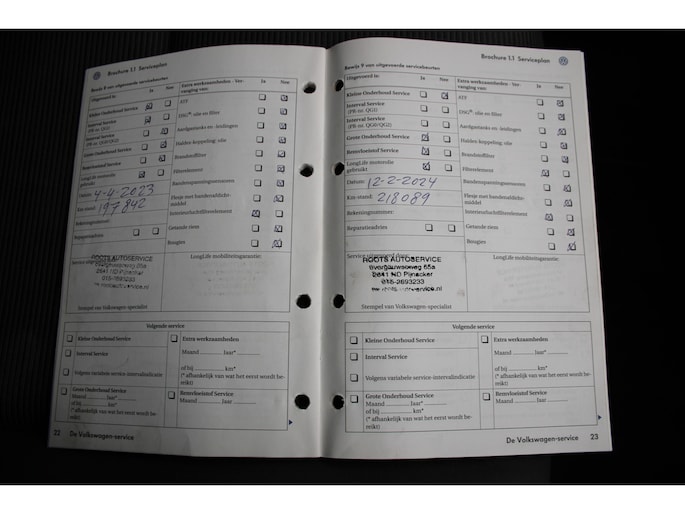 Brochure 1.1 Serviceplan
Bewijs 8 van uitgevoerde servicebeurten
Uitgevoerd te: Ja Nee
Kleine Onderhoud Service
Interval Service
(PR-nr. QG1)
Interval Service
(PR-nr. QG0/QG2)
Grote Onderhoud Service
Remvloeistof Service
LongLife motorolie
gebruikt
Datum: 4-4-2023
Km-stand: 197842
Rekeningnummer:
Reparatieadvies
Extra werkzaamheden - Ver-
vanging van: Ja Nee
ATF
DSG®: olie en filter
Aardgastanks en -leidingen
Haldex-koppeling: olie
Brandstoffilter
Filterelement
Bandenspanningssensoren
Flesje met bandenafdicht-
middel
Interieurluchtfilterelement
Getande riem
Bougies
Service uitgevoerd door:
LongLife mobiliteitsgarantie:
ROOTS AUTOSERVICE
Overgauwseweg 65a
2641 ND Pijnacker
015-2693233
Stempel van Volkswagen-specialist
Volgende service
Kleine Onderhoud Service
Interval Service
Volgens variabele service-intervalindicatie
Extra werkzaamheden
Maand ........... Jaar* ...........
of bij ........... km*
(* afhankelijk van wat het eerst wordt be-
reikt)
Grote Onderhoud Service
Maand ........... Jaar* ...........
of bij ........... km*
(* afhankelijk van wat het eerst wordt be-
reikt)
Remvloeistof Service
Maand ........... Jaar ...........
22 De Volkswagen-service
Brochure 1.1 Serviceplan
Bewijs 9 van uitgevoerde servicebeurten
Uitgevoerd te: Ja Nee
Kleine Onderhoud Service
Interval Service
(PR-nr. QG1)
Interval Service
(PR-nr. QG0/QG2)
Grote Onderhoud Service
Remvloeistof Service
LongLife motorolie
gebruikt
Datum: 12-2-2024
Km-stand: 218089
Rekeningnummer:
Reparatieadvies
Extra werkzaamheden - Ver-
vanging van: Ja Nee
ATF
DSG®: olie en filter
Aardgastanks en -leidingen
Haldex-koppeling: olie
Brandstoffilter
Filterelement
Bandenspanningssensoren
Flesje met bandenafdicht-
middel
Interieurluchtfilterelement
Getande riem
Bougies
Service uitgevoerd door:
LongLife mobiliteitsgarantie:
ROOTS AUTOSERVICE
Overgauwseweg 65a
2641 ND Pijnacker
015-2693233
Stempel van Volkswagen-specialist
Volgende service
Kleine Onderhoud Service
Interval Service
Volgens variabele service-intervalindicatie
Extra werkzaamheden
Maand ........... Jaar* ...........
of bij ........... km*
(* afhankelijk van wat het eerst wordt be-
reikt)
Grote Onderhoud Service
Maand ........... Jaar* ...........
of bij ........... km*
(* afhankelijk van wat het eerst wordt be-
reikt)
Remvloeistof Service
Maand ........... Jaar ...........
De Volkswagen-service 23